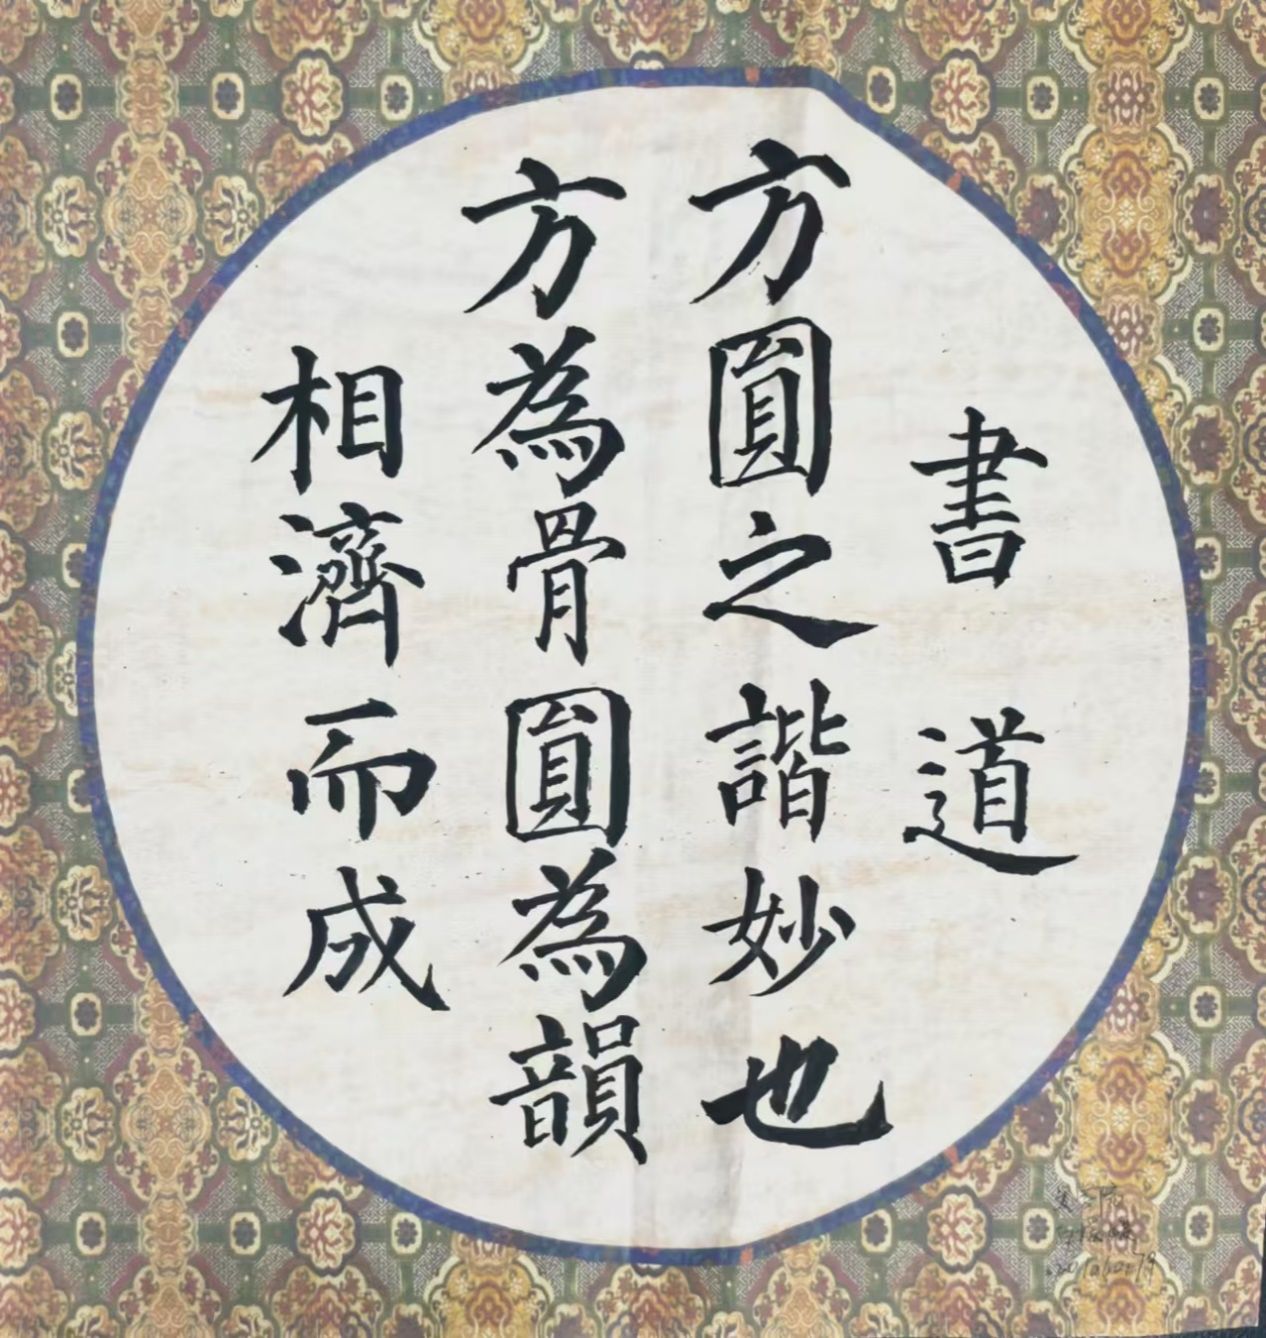 書道
方圓之諧妙也
方為骨圓為韻
相濟而成